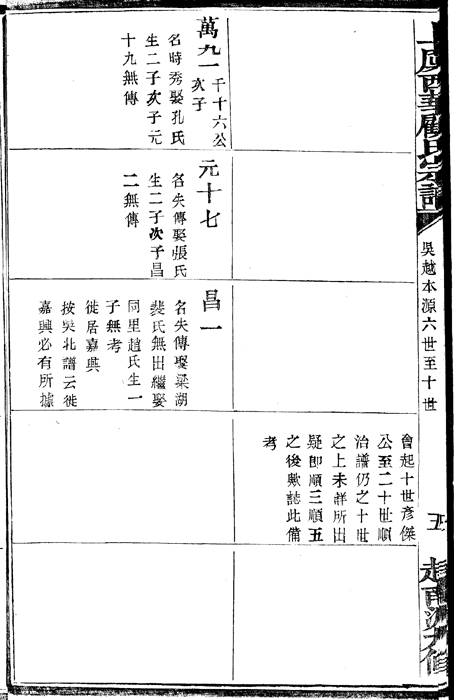 上虞西華顧氏宗譜
吳越本源六世至十世
萬九一
千十六公
次子
名時秀娶孔氏
生二子次子元
十九無傳
元十七
名失傳娶張氏
生二子次子昌
二無傳
昌一
名失傳娶梁湖
裴氏無出繼娶
同里趙氏生一
子無考
徙居嘉興
按吳北譜云徙
嘉興必有所據
會起十世彥傑
公至二十世順
治譜仍之十世
之上未詳所出
疑卽順三順五
之後歟誌此備
考